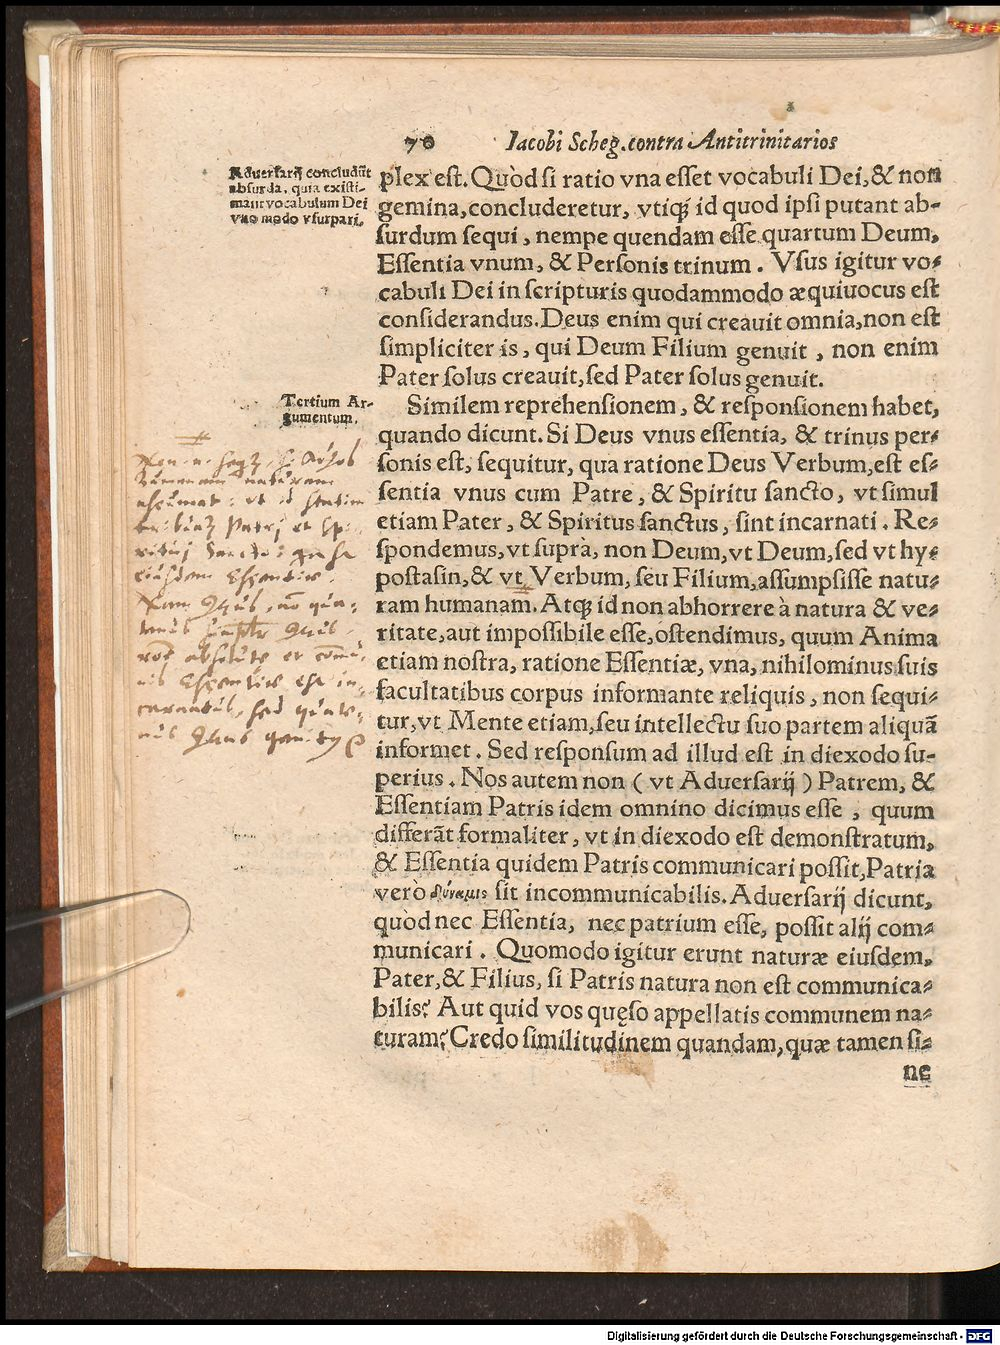 70 Iacobi Scheg. contra Antitrinitarios
Aduersarij concludũt
absurda, quia existi-
mant vocabulum Dei
vno modo vsurpari.
plex est. Quòd si ratio vna esset vocabuli Dei, & non
gemina, concluderetur, vtiq; id quod ipsi putant ab-
surdum sequi, nempe quendam esse quartum Deum,
Essentia vnum, & Personis trinum. Vsus igitur vo-
cabuli Dei in scripturis quodammodo æquiuocus est
considerandus. Deus enim qui creauit omnia, non est
simpliciter is, qui Deum Filium genuit, non enim
Pater solus creauit, sed Pater solus genuit.
Tertium Ar-
gumentum.
Similem reprehensionem, & responsionem habet,
quando dicunt. Si Deus vnus essentia, & trinus per-
sonis est, sequitur, qua ratione Deus Verbum, est es-
sentia vnus cum Patre, & Spiritu sancto, vt simul
etiam Pater, & Spiritus sanctus, sint incarnati. Re-
spondemus, vt suprà, non Deum, vt Deum, sed vt hy-
postasin, & vt Verbum, seu Filium, assumpsisse natu-
ram humanam. Atq; id non abhorrere à natura & ve-
ritate, aut impossibile esse, ostendimus, quum Anima
etiam nostra, ratione Essentiæ, vna, nihilominus suis
facultatibus corpus informante reliquis, non sequi-
tur, vt Mente etiam, seu intellectu suo partem aliquã
informet. Sed responsum ad illud est in diexodo su-
perius. Nos autem non (vt Aduersarij) Patrem, &
Essentiam Patris idem omnino dicimus esse, quum
differãt formaliter, vt in diexodo est demonstratum,
& Essentia quidem Patris communicari possit, Patria
verò δύναμις sit incommunicabilis. Aduersarij dicunt,
quòd nec Essentia, nec patrium esse, possit alij com-
municari. Quomodo igitur erunt naturæ eiusdem,
Pater, & Filius, si Patris natura non est communica-
bilis? Aut quid vos quęso appellatis communem na-
turam? Credo similitudinem quandam, quæ tamen si-
ne
naturam
Patri et
eiusdem Essentiæ.
absolute et
Essentiæ est in-
sed
Digitalisierung gefördert durch die Deutsche Forschungsgemeinschaft - DFG